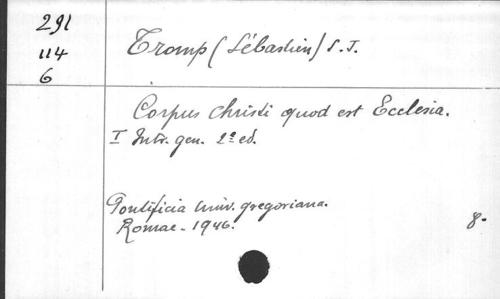 291
114
6
Tromp (Sébastien) S. J.
Corpus Christi quod est Ecclesia.
I Intr. gen. 2ª ed.
Pontificia Univ. gregoriana.
Romae - 1946.
8-